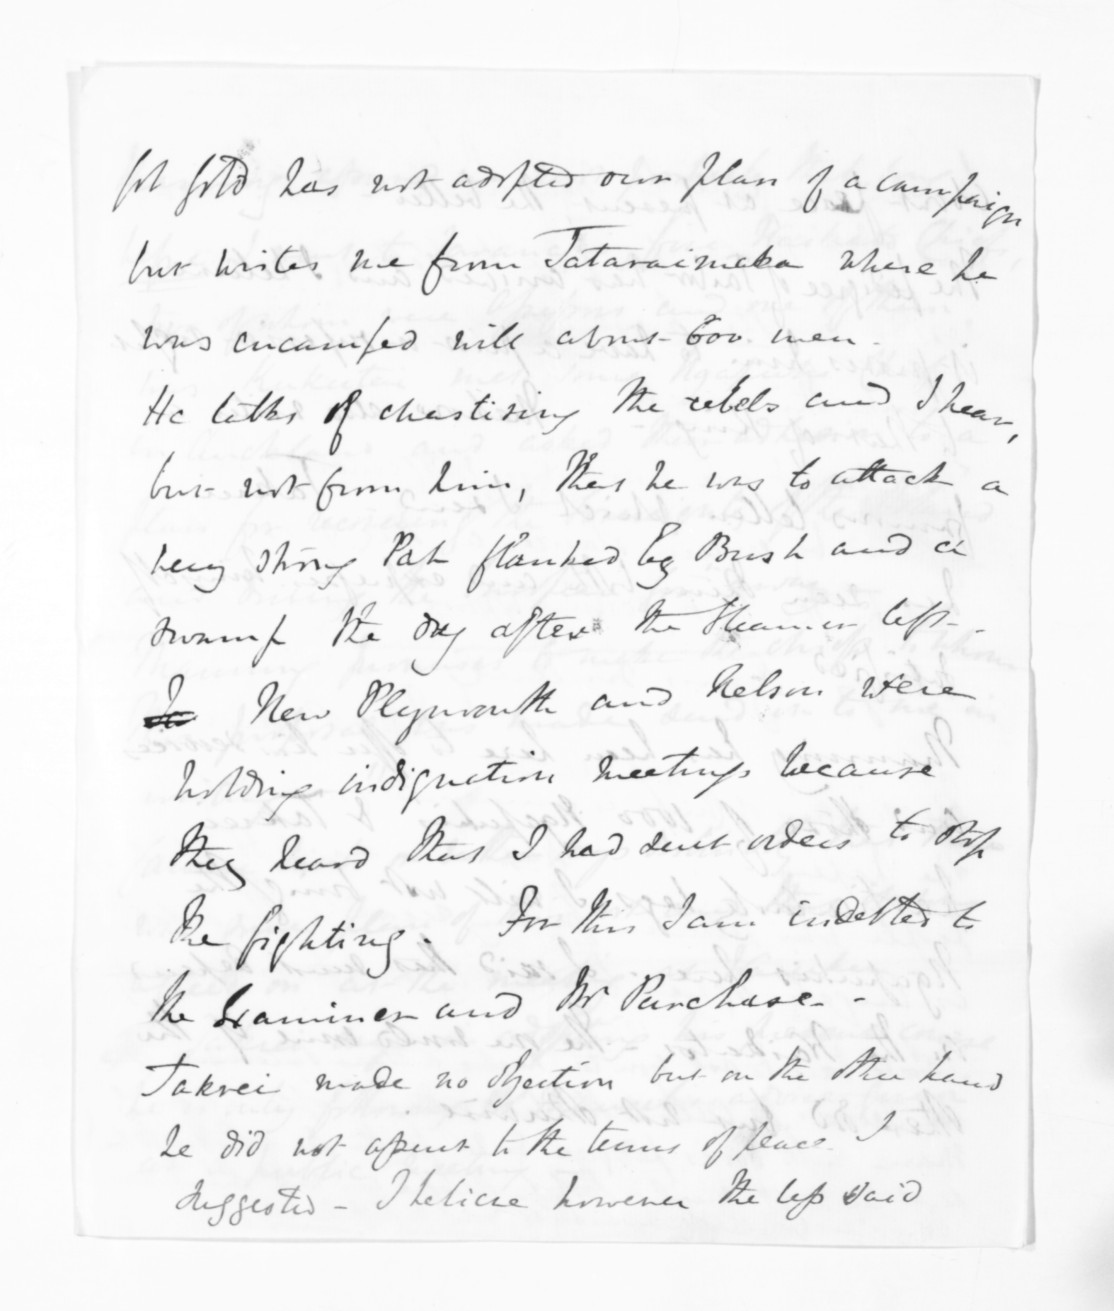 Col Gold has not adopted our plan of a campaign
but writes me from Tataraimaka where he
was encamped with about 600 men.
He talks of chastising the rebels and I hear,
but not from him, that he was to attack a
very strong Pah flanked by Bush and a
swamp the day after the Steamer left -
New Plymouth and Nelson were
holding indignation meetings because
they heard that I had sent orders to stop
the fighting. For this I am indebted to
the Examiner and Mr Purchase. -
Takrei made no objection but on the other hand
he did not assent to the terms of peace I
suggested - I believe however the less said